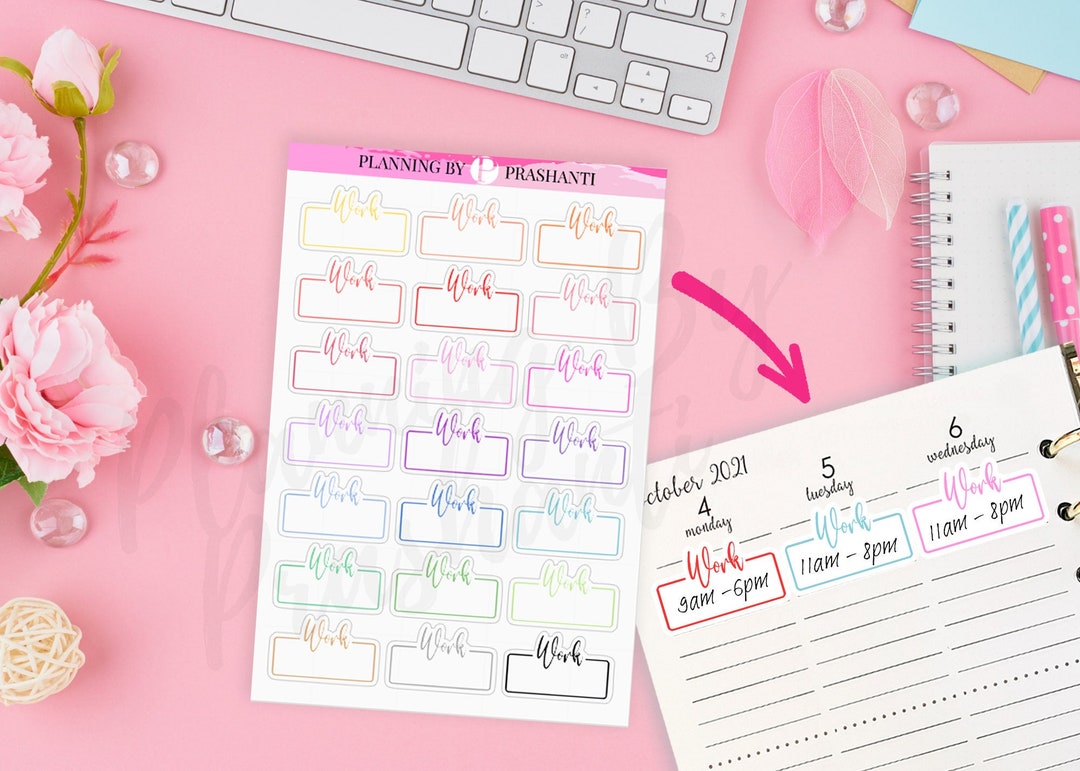 PLANNING BY P PRASHANTI
Work Work Work
Work Work Work
Work Work Work
Work Work Work
Work Work Work
Work Work Work
Work Work Work
Planning By
Prashanti
ctober 2021
4
monday
Work
9am - 6pm
5
tuesday
Work
11am - 8pm
6
wednesday
Work
11am - 8pm